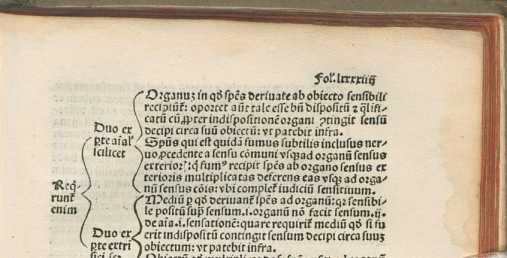 Fol. lxxxiiij
Organuz in qđ spēs deriuate ab obiecto sensibili
recipiūt: oportet aūt tale esse bn̄ dispositū ⁊ q̄lifi-
catū cū ꝓpter indispositionē organi ꝯtingit sensū
decipi circa suū obiectū: vt patebit infra.
Duo ex
ꝑte aīal'
scilicet
Spūs qui est quidā fumus subtilis inclusus ner-
uo, ꝓcedente a sensu cōmuni vsq̄ ad organū sensus
exterioꝛ: q̄ fumꝰ recipit spēs ab organo sensus ex
terioris multiplicatas deferens eas vsq̄ ad orga-
nū sensus cōis: vbi complet iudiciū sensitiuum.
Req̄
runt̄
enim
Mediū ꝑ qđ deriuant̄ spēs ad organū: qꝛ sensibi-
le positū sup̄ sensum .i. organū nō facit sensum .ij.
de aīa .i. sensationē: quare requirit̄ mediū qđ si fu
erit indispositū contingit sensum decipi circa suuz
obiectum: vt patebit infra.
Duo ex
ꝑte extri